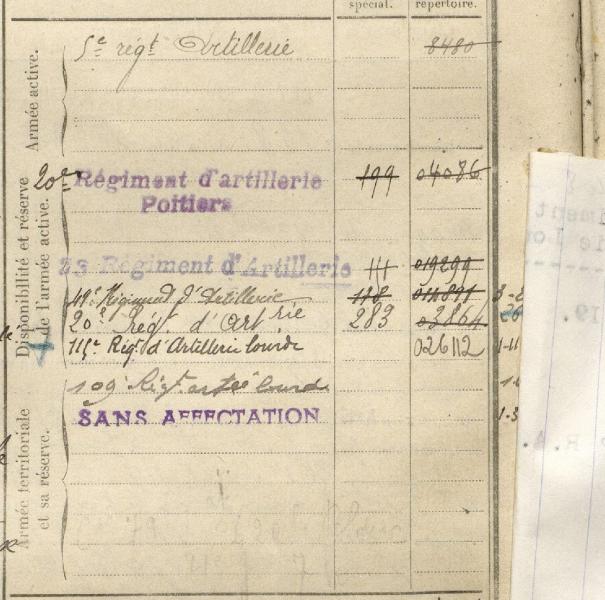 spécial. répertoire.
Armée active.
5e régt Artillerie 8480
Disponibilité et réserve
de l'armée active.
20e Régiment d'artillerie 199 04086
Poitiers
33 Régiment d'Artillerie 111 019299
49e Régiment d'Artillerie 118
20e Rég. d'Artrie 283 03864
115e Rég. d'Artillerie lourde 026112
109 Régt lourde
SANS AFFECTATION
Armée territoriale
et sa réserve.